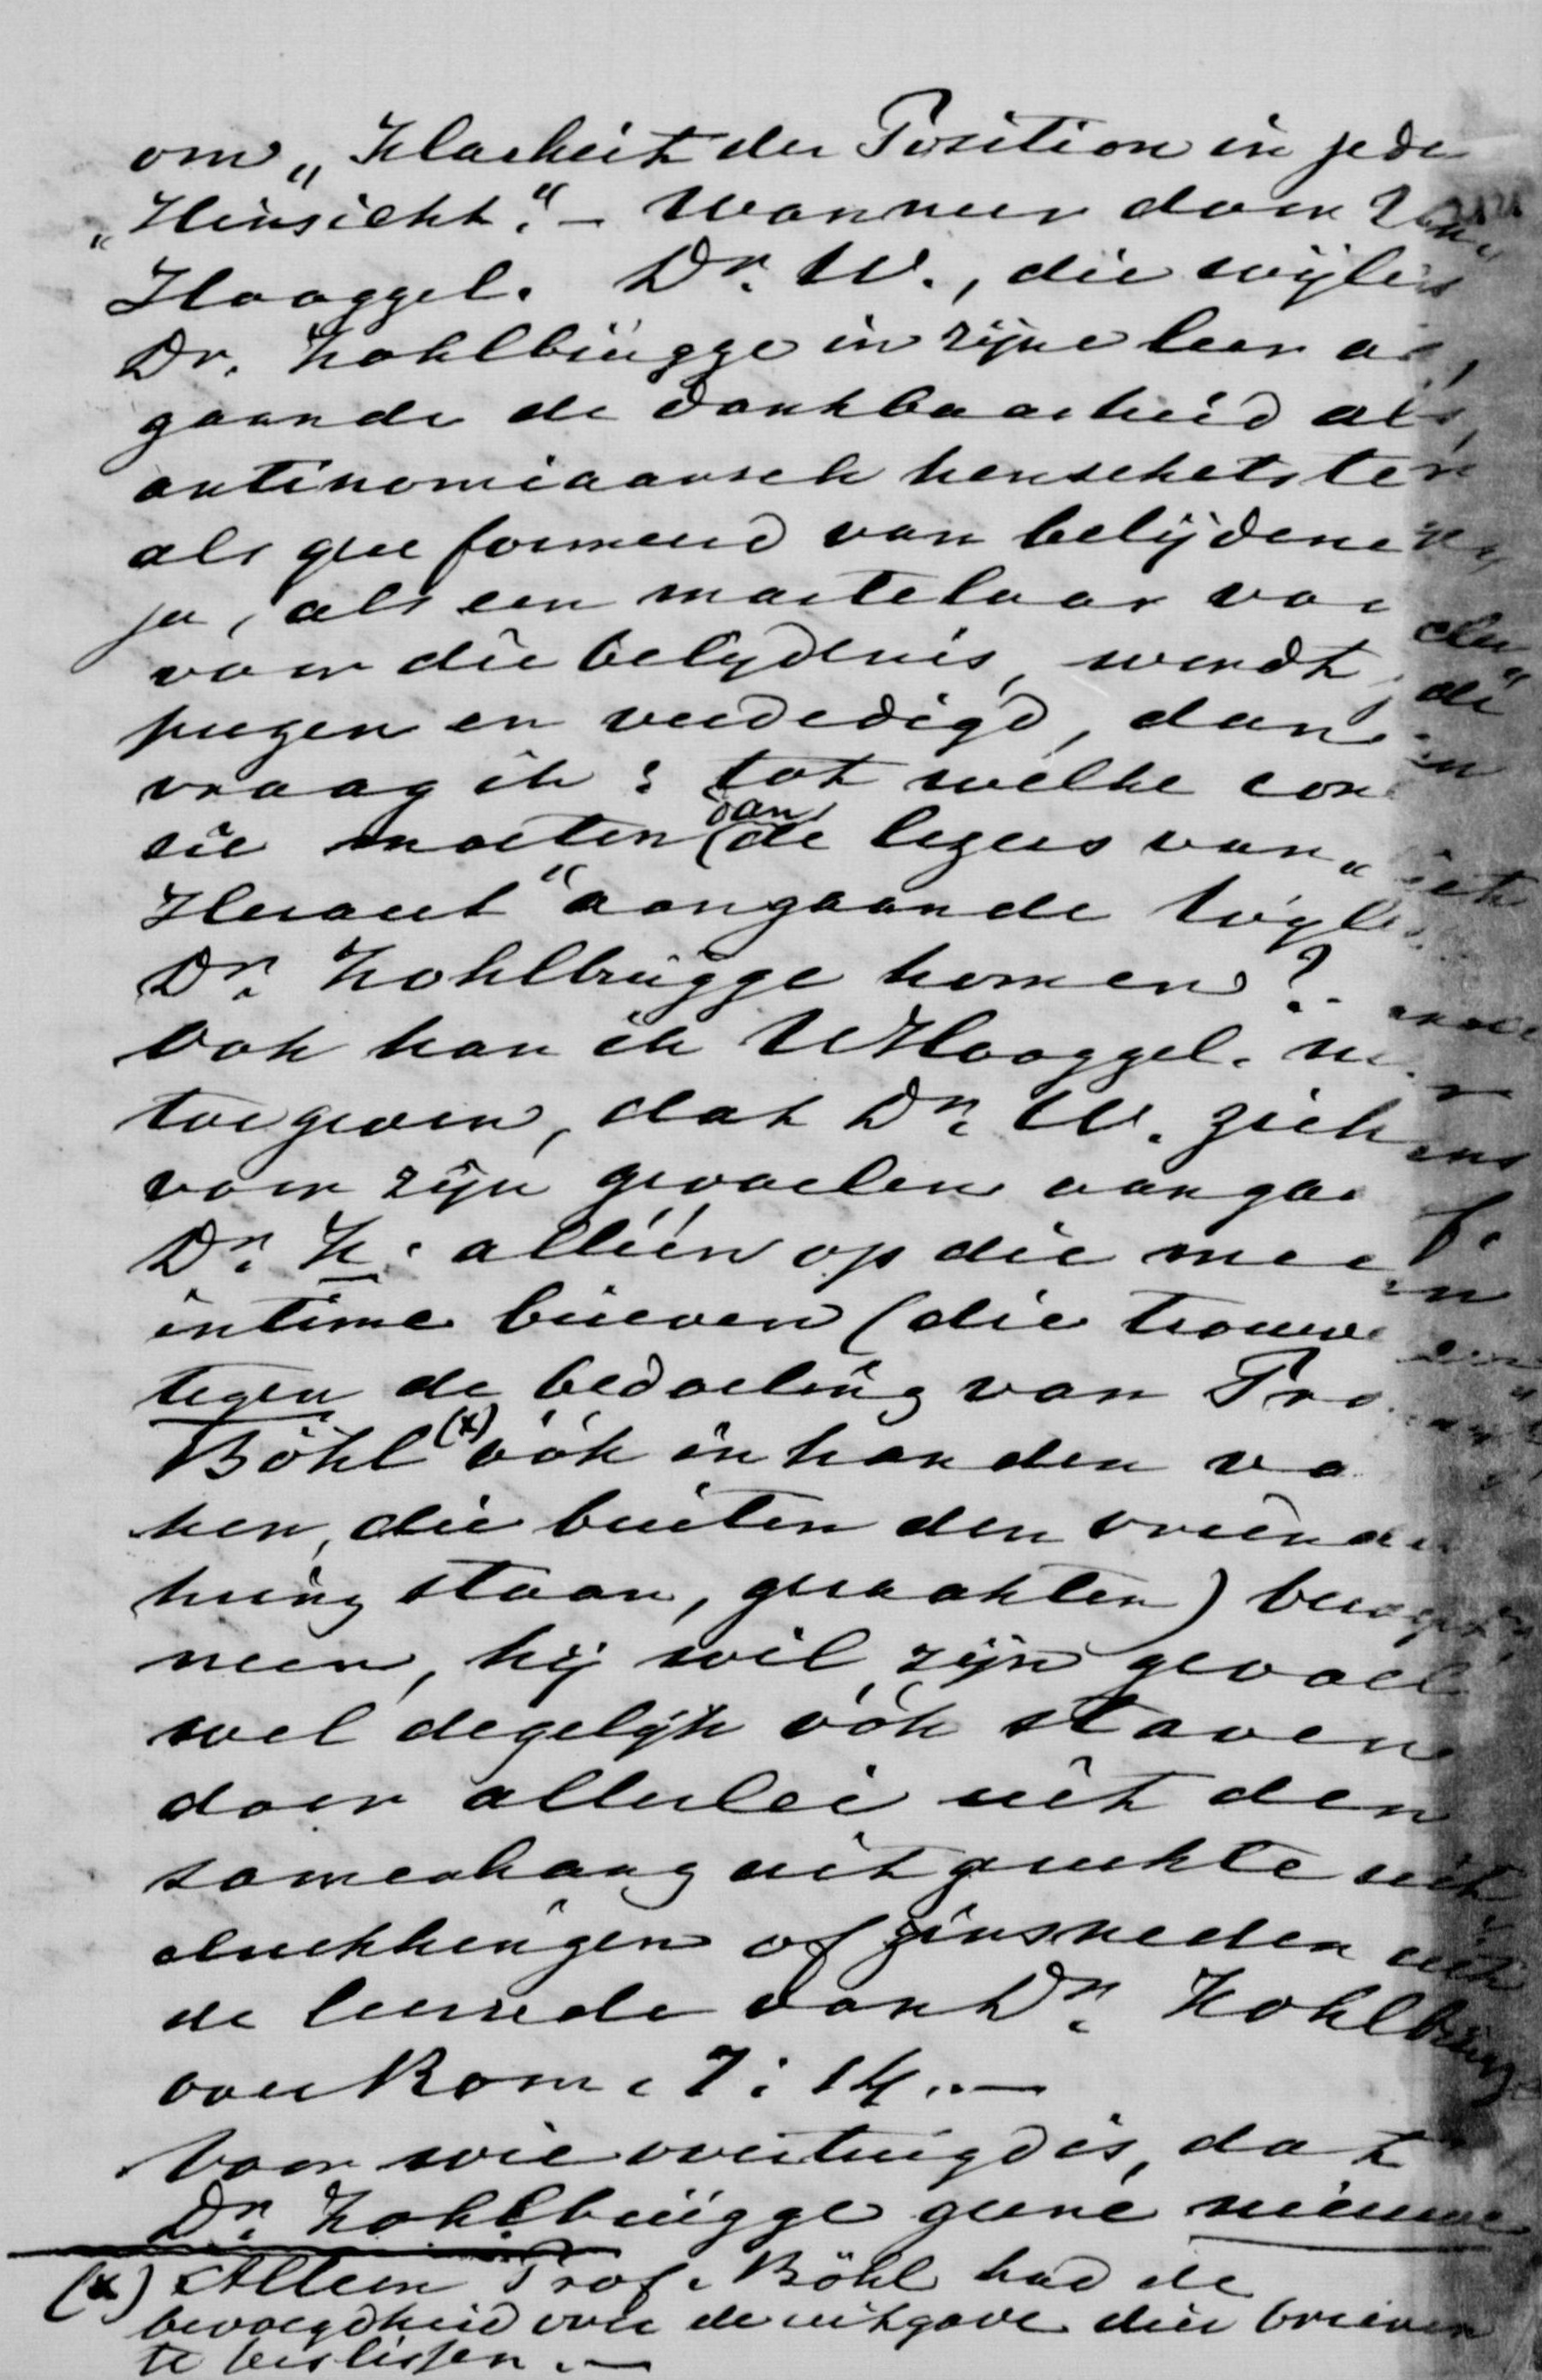 om „Klarheit der Position in jede
„Hinsicht.“ – Wanneer door
Hooggel. Dr. W., die wijlen
Dr. Kohlbrügge in zijne leer
gaande de dankbaarheid als
antinomiaansch kenschetste
als gereformeerd van belijdenis
ja, als een martelaar
voor die belydenis, wordt
prezen en verdedigd, dan
vraag ik: tot welke con
sie moeten dan de lezers van „
Heraut“ aangaande
Dr. Kohlbrügge komen?
Ook kan ik UHooggel.
toegeven, dat Dr. W. zich
voor zijn gevoelen aangaa
Dr. K. alléén op die
intime brieven (die trouwe
tegen de bedoeling van Pro
Böhl (x) óók in handen va
hen, die buiten den vrienden
kring staan, geraakten) beroept
neen, hij wil zijn gevoel
wel degelijk óók staven
door allerlei uit den
samenhang uitgerukte uit
drukkingen of zinsneden uit
de leerrede van Dr. Kohlbrügge
over Rom. 7:14. –
Voor wie overtuigd is, dat
Dr. Kohlbrügge geene nieuwe
(x) Alleen Prof. Böhl had de
bevoegdheid over de uitgave dier brieven
te beslissen. –